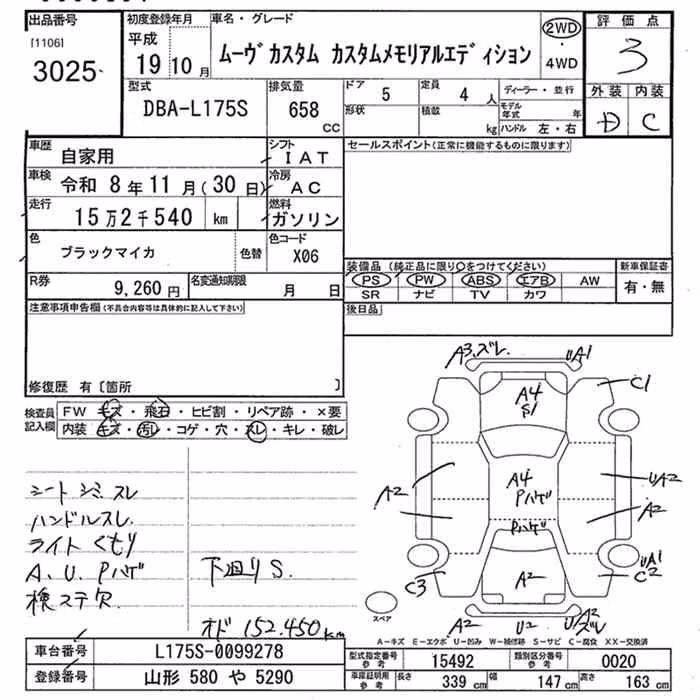 出品番号
[1106]
3025
初度登録年月
平成
19 10 月
車名・グレード
ムーヴ カスタム カスタムメモリアルエディション
2WD
・
4WD
評価点
3
外装 内装
D C
型式
DBA-L175S
排気量
658
CC
ドア 5
定員 4 人
形状
積載 kg
ディーラー・並行
モデル年式 年
ハンドル 左・右
車歴 自家用
シフト IAT
車検 令和 8年 11月(30日)
冷房 AC
走行 15万2千540 km
燃料 ガソリン
色 ブラックマイカ 色替
色コード X06
R券 9,260円
名変通知期限 月 日
セールスポイント(正常に機能するものに限ります)
装備品 (純正品に限り○をつけてください)
PS PW ABS エアB AW
SR ナビ TV カワ
新車保証書
有・無
後日品
注意事項申告欄(不具合内容等は具体的に記入して下さい)
修復歴 有〔箇所 〕
検査員記入欄
FW キズ・飛石・ヒビ割・リペア跡・×要
内装 キズ・汚レ・コゲ・穴・スレ・キレ・破レ
シート シミ スレ
ハンドルスレ
ライト くもり
A、U、Pハゲ
検ステ欠
下廻り S.
オド 152.450km
A3.ズレ UA1
A4
S1
C1
A2
A4
Pハゲ
UA2
A2
Pハゲ
C3
A2
UA1
C2
A2 U2 UA2
ズレ
スペア
A-キズ E-エクボ U-凹み W-補修跡 S-サビ C-腐食 XX-交換済
車台番号 L175S-0099278
登録番号 山形 580 や 5290
型式指定番号 参考 15492
類別区分番号 参考 0020
車庫証明用 参考 長さ 339cm 幅 147cm 高さ 163cm